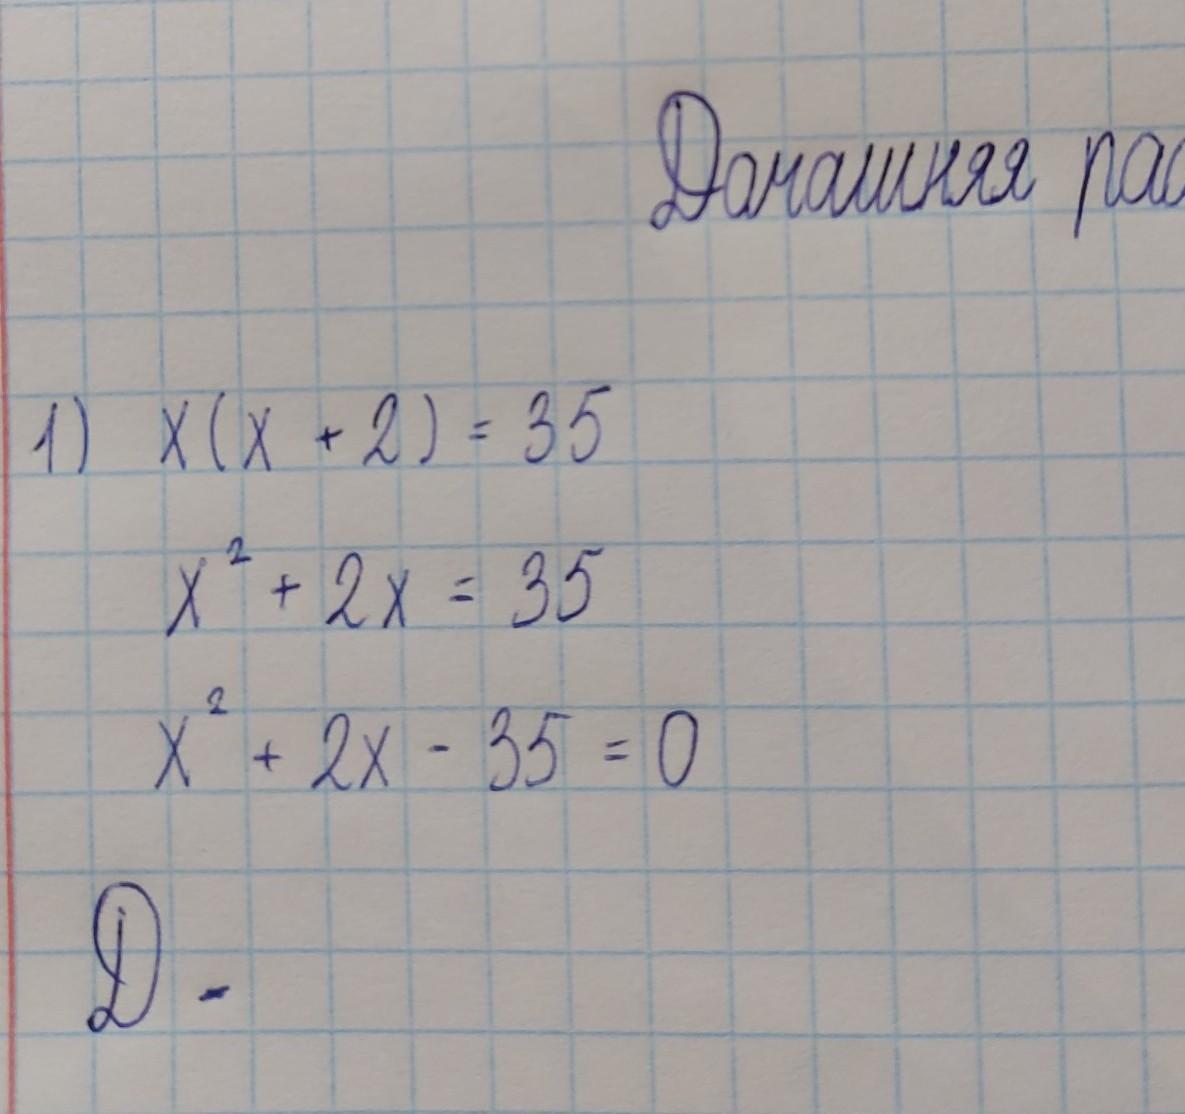 Домашняя рас
1) x(x + 2) = 35
x² + 2x = 35
x² + 2x - 35 = 0
D -